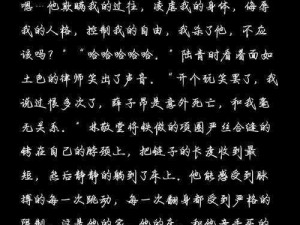 嗯…他欺瞒我的过往，凌虐我的身体，侮辱
我的人格，控制我的自由，我杀了他，不应
该吗？”“哈哈哈哈哈。”陆青看着面如
土色的律师笑出了声音。“开个玩笑罢了，我
说过很多次了，薛子昂是意外死亡，和我毫
无关系。”林敬堂将铁做的项圈严丝合缝的
锁在自己的脖颈上，把链子的长度收到最
短，然后静静的躺到了床上。他能感受到脉
搏的每一次跳动，每一次翻身都受到严格的